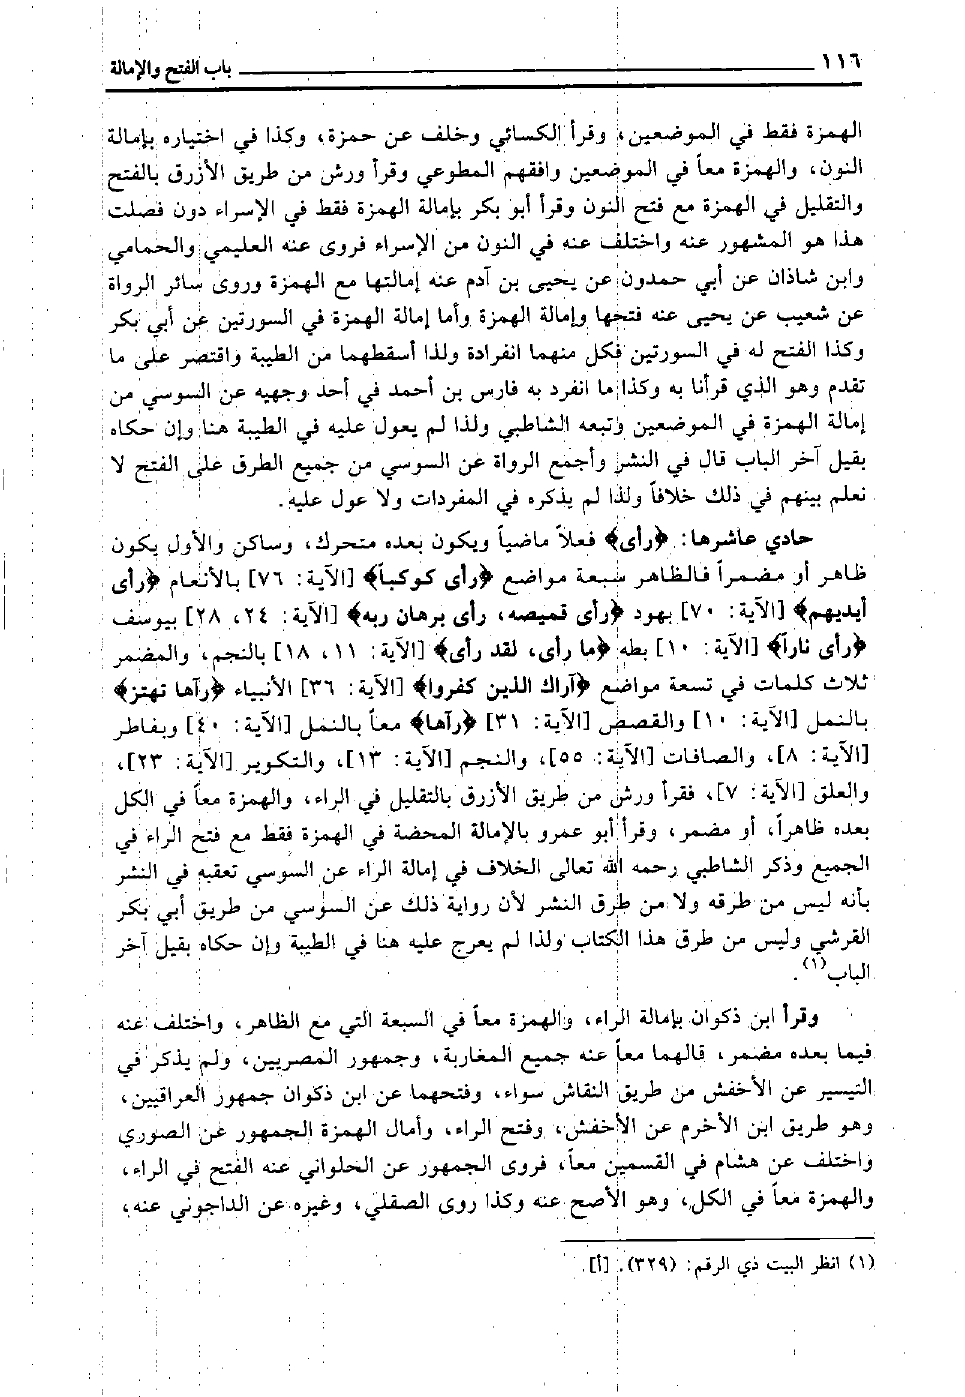 ١١٦ باب الفتح والإمالة
الهمزة فقط في الموضعين، وقرأ الكسائي وخلف عن حمزة، وكذا في اختياره بإمالة
النون، والهمزة معاً في الموضعين وافقهم المطوعي وقرأ ورش من طريق الأزرق بالفتح
والتقليل في الهمزة مع فتح النون وقرأ أبو بكر بإمالة الهمزة فقط في الإسراء دون فصلت
هذا هو المشهور عنه واختلف عنه في النون من الإسراء فروى عنه العليمي والحمامي
وابن شاذان عن أبي حمدون عن يحيى بن آدم عنه إمالتها مع الهمزة وروى سائر الرواة
عن شعيب عن يحيى عنه فتحها وإمالة الهمزة وأما إمالة الهمزة في السورتين عن أبي بكر
وكذا الفتح له في السورتين فكل منهما انفرادة ولذا أسقطهما من الطيبة واقتصر على ما
تقدم وهو الذي قرأنا به وكذا ما انفرد به فارس بن أحمد في أحد وجهيه عن السوسي من
إمالة الهمزة في الموضعين وتبعه الشاطبي ولذا لم يعول عليه في الطيبة هنا وإن حكاه
بقيل آخر الباب قال في النشر وأجمع الرواة عن السوسي من جميع الطرق على الفتح لا
نعلم بينهم في ذلك خلافاً ولذا لم يذكره في المفردات ولا عول عليه.
حادي عاشرها: ﴿رأى﴾ فعلاً ماضياً ويكون بعده متحرك، وساكن والأول يكون
ظاهر أو مضمراً فالظاهر سبعة مواضع ﴿رأى كوكباً﴾ [الآية: ٧٦] بالأنعام ﴿رأى
أيديهم﴾ [الآية: ٧٠] بهود ﴿رأى قميصه، رأى برهان ربه﴾ [الآية: ٢٤، ٢٨] بيوسف
﴿رأى ناراً﴾ [الآية: ١٠] بطه ﴿ما رأى، لقد رأى﴾ [الآية: ١١، ١٨] بالنجم، والمضمر
ثلاث كلمات في تسعة مواضع ﴿آراك الذين كفروا﴾ [الآية: ٣٦] الأنبياء ﴿رآها تهتز﴾
بالنمل [الآية: ١٠] والقصص [الآية: ٣١] ﴿رآها﴾ معاً بالنمل [الآية: ٤٠] وبفاطر
[الآية: ٨]، والصافات [الآية: ٥٥]، والنجم [الآية: ١٣]، والتكوير [الآية: ٢٣]،
والعلق [الآية: ٧]، فقرأ ورش من طريق الأزرق بالتقليل في الراء، والهمزة معاً في الكل
بعده ظاهراً، أو مضمر، وقرأ أبو عمرو بالإمالة المحضة في الهمزة فقط مع فتح الراء في
الجميع وذكر الشاطبي رحمه الله تعالى الخلاف في إمالة الراء عن السوسي تعقبه في النشر
بأنه ليس من طرقه ولا من طرق النشر لأن رواية ذلك عن السوسي من طريق أبي بكر
القرشي وليس من طرق هذا الكتاب ولذا لم يعرج عليه هنا في الطيبة وإن حكاه بقيل آخر
الباب(١).
وقرأ ابن ذكوان بإمالة الراء، والهمزة معاً في السبعة التي مع الظاهر، واختلف عنه
فيما بعده مضمر، قالهما معاً عنه جميع المغاربة، وجمهور المصريين، ولم يذكر في
التيسير عن الأخفش من طريق النقاش سواء، وفتحهما عن ابن ذكوان جمهور العراقيين،
وهو طريق ابن الأخرم عن الأخفش، وفتح الراء، وأمال الهمزة الجمهور عن الصوري
واختلف عن هشام في القسمين معاً، فروى الجمهور عن الحلواني عنه الفتح في الراء،
والهمزة معاً في الكل، وهو الأصح عنه وكذا روى الصقلي، وغيره عن الداجوني عنه،
(١) انظر البيت ذي الرقم: (٣٢٩). [أ].